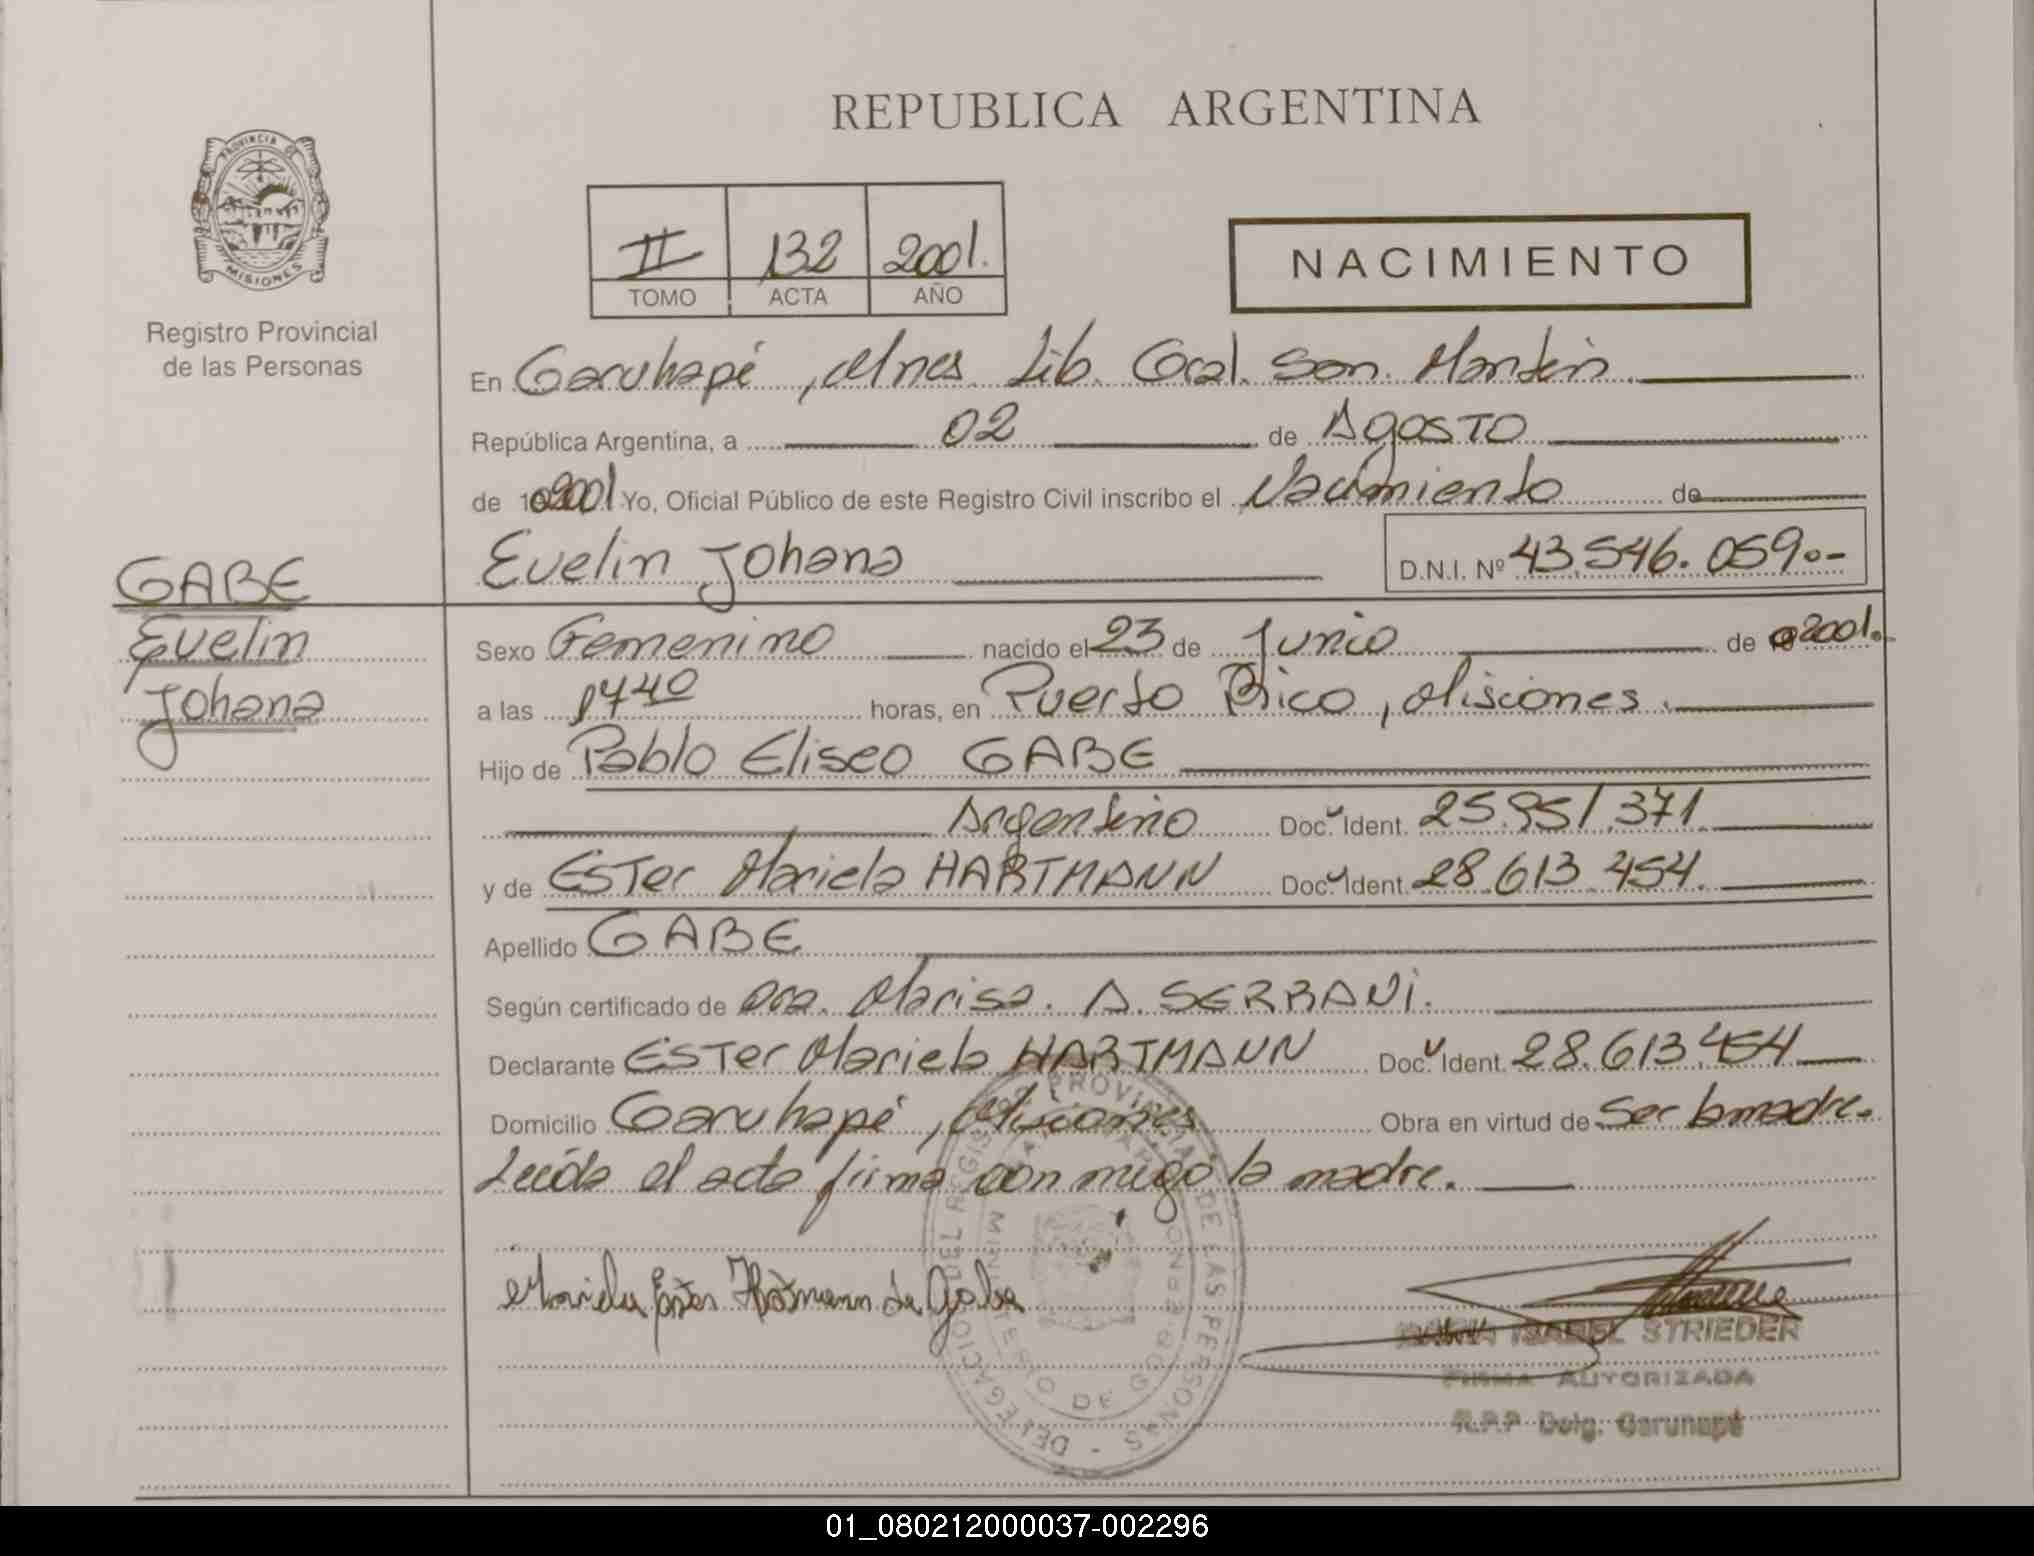 REPUBLICA ARGENTINA
PROVINCIA DE
MISIONES
Registro Provincial
de las Personas
II 132 2001.
TOMO ACTA AÑO
NACIMIENTO
En Garuhapé, Mnes. Lib. Gral. San. Martin.
República Argentina, a 02 de Agosto
de 2001 Yo, Oficial Público de este Registro Civil inscribo el Nacimiento de
Evelin Johana D.N.I. Nº 43.546.059.-
GABE
Evelin
Johana
Sexo Femenino nacido el 23 de Junio de 2001.
a las 1740 horas, en Puerto Rico, Misiones.
Hijo de Pablo Eliseo GABE
Argentino Doc. Ident. 25.951.371.
y de Ester Mariela HARTMANN Doc. Ident. 28.613.454.
Apellido GABE
Según certificado de Dra. Marisa. A. SERRANI.
Declarante Ester Mariela HARTMANN Doc. Ident. 28.613.454
Domicilio Garuhapé, Misiones Obra en virtud de Ser la madre.
Leída el acta firma conmigo la madre.
Mariela Ester Hatmann de Gabe
ISABEL STRIEDER
FIRMA AUTORIZADA
R.P.P Delg. Garuhapé
01_080212000037-002296